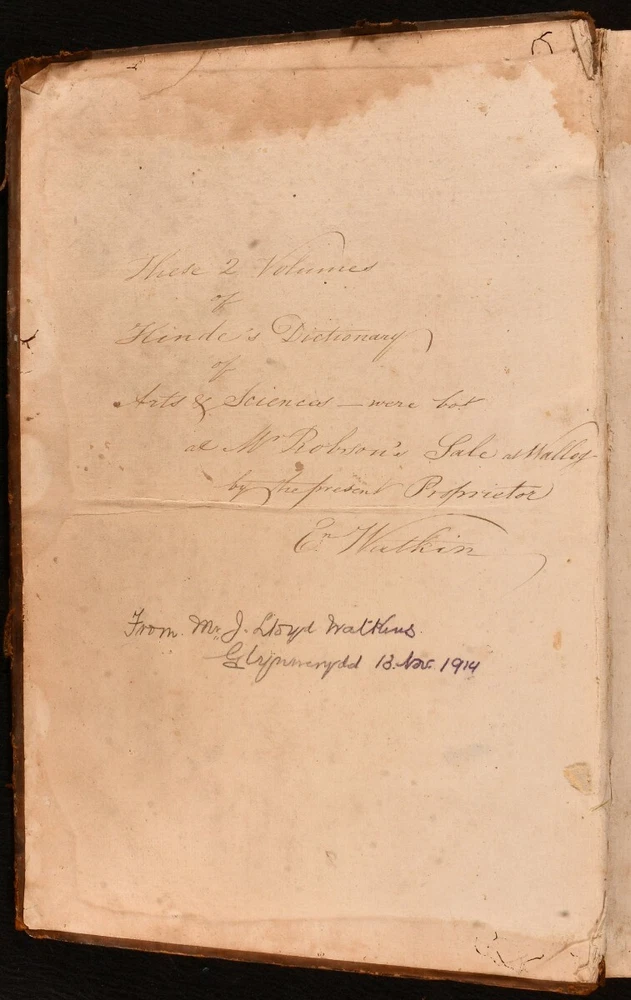 These 2 Volumes
of
Hinde's Dictionary
of
Arts & Sciences — were bot
at Mr Robson's Sale at
by the present Proprietor
En Watkin
From Mr. J. Lloyd Watkins
13. Nov. 1914